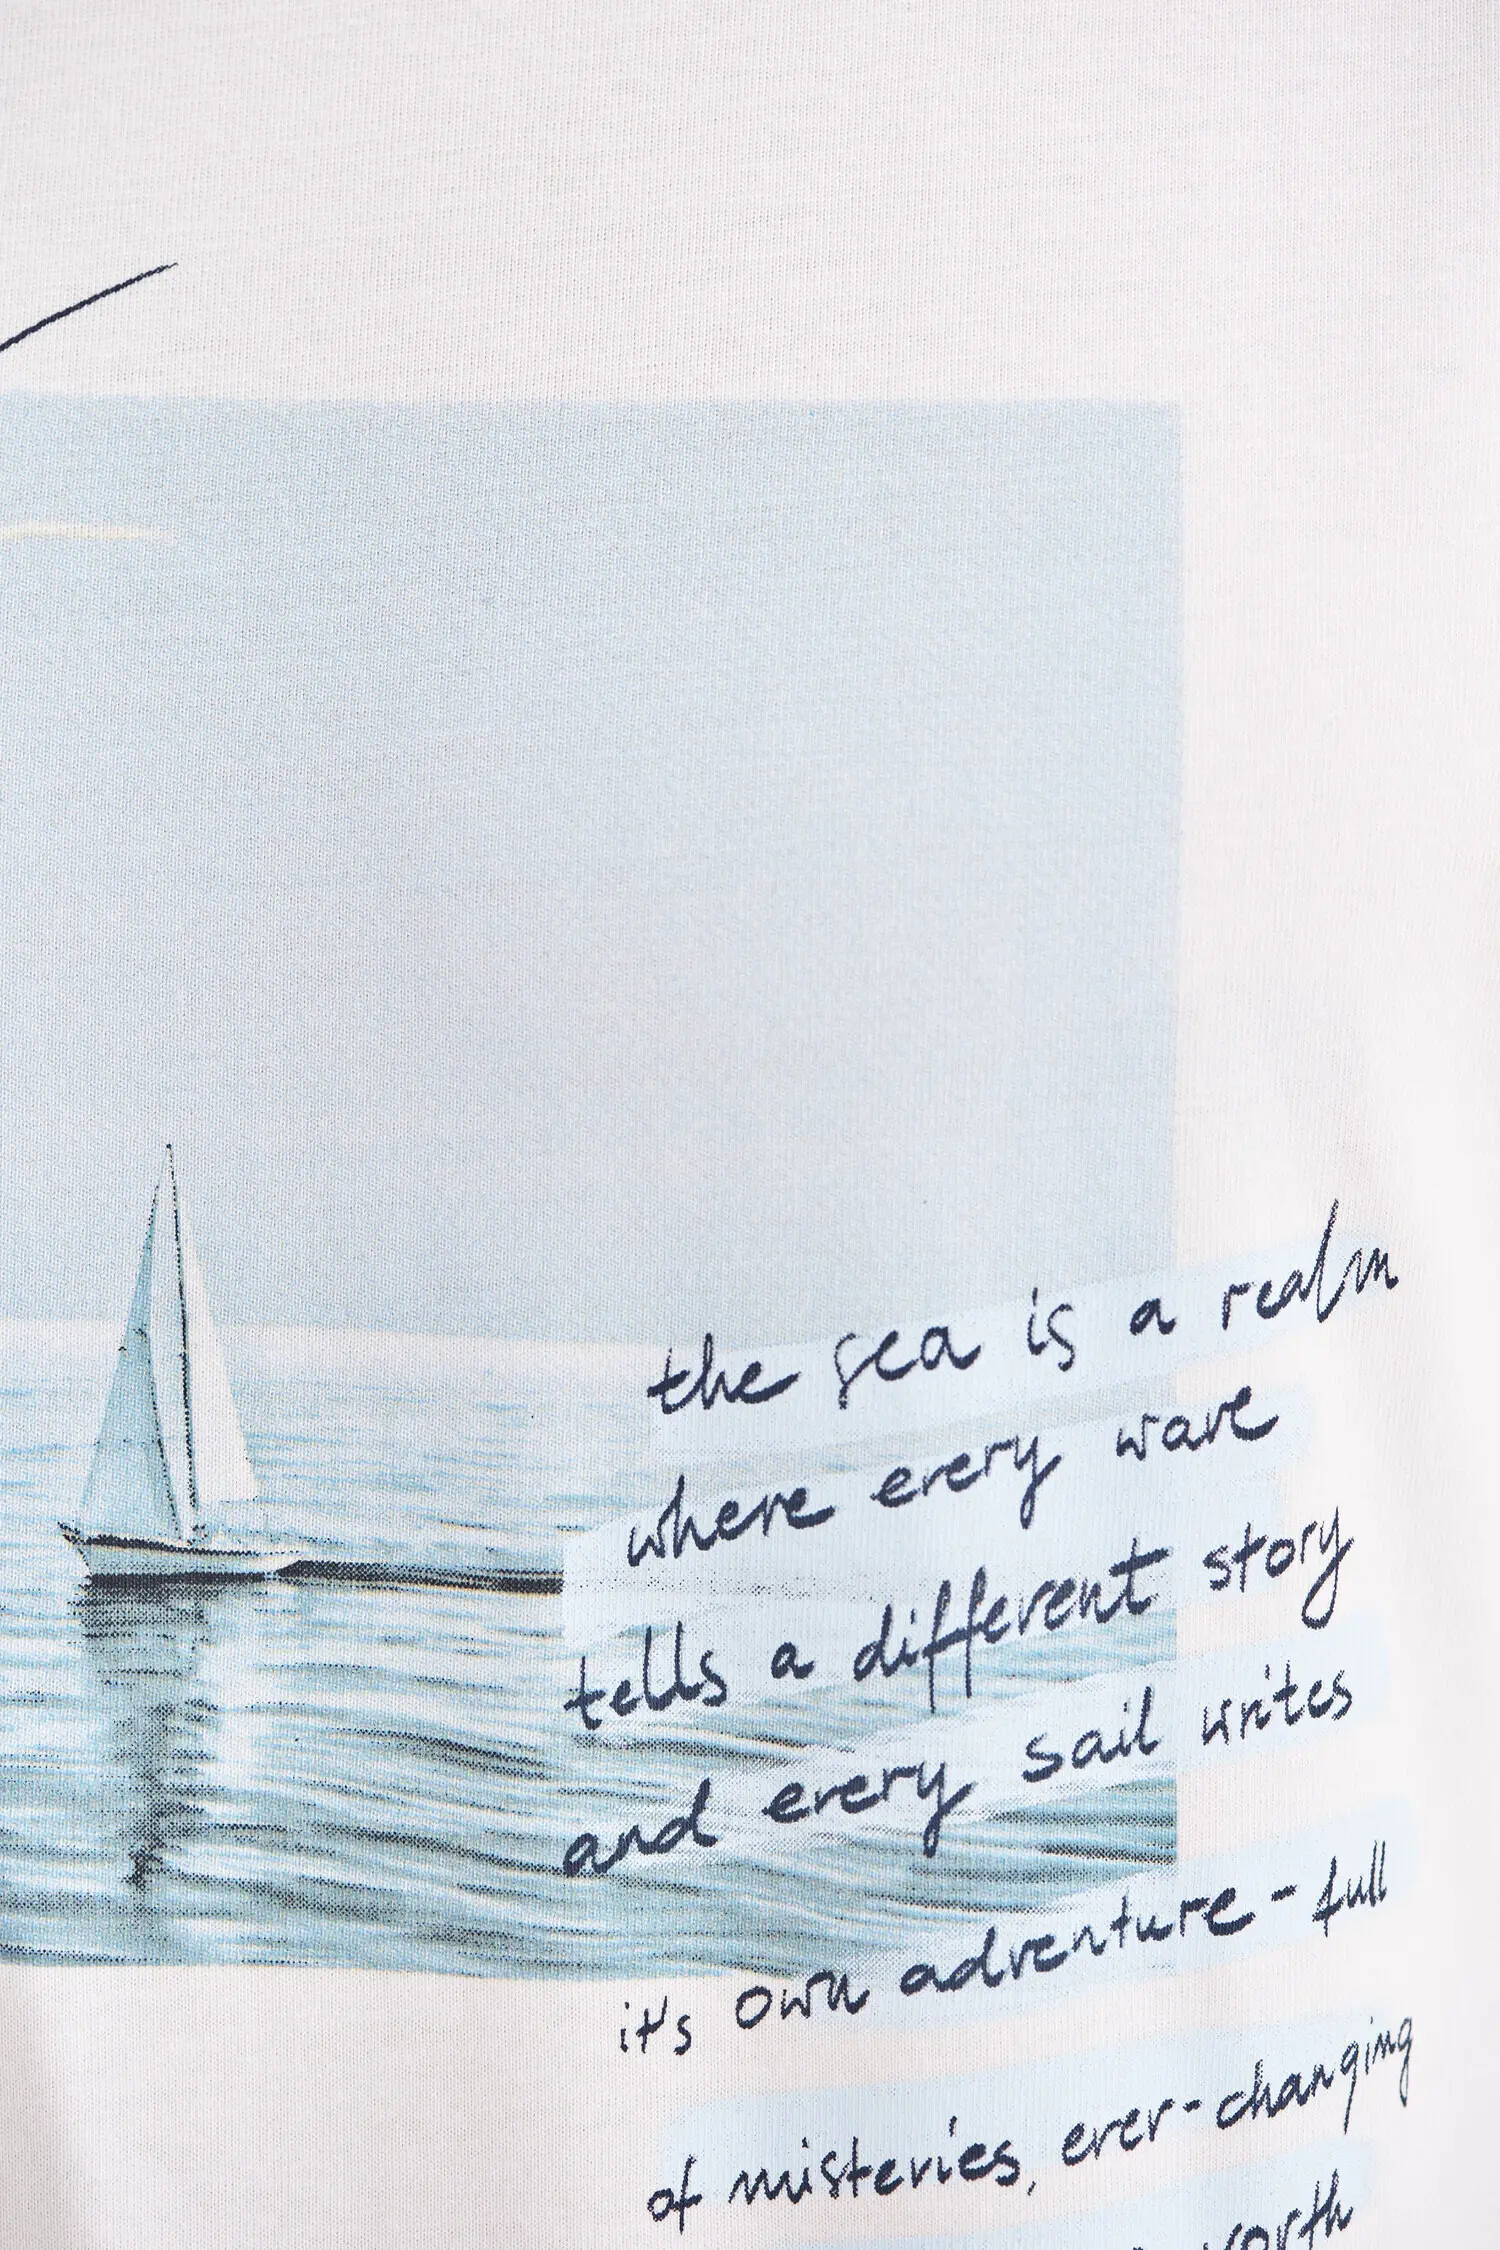 the sea is a realm
where every wave
tells a different story
and every sail writes
it's own adventure - full
of misteries, ever-changing